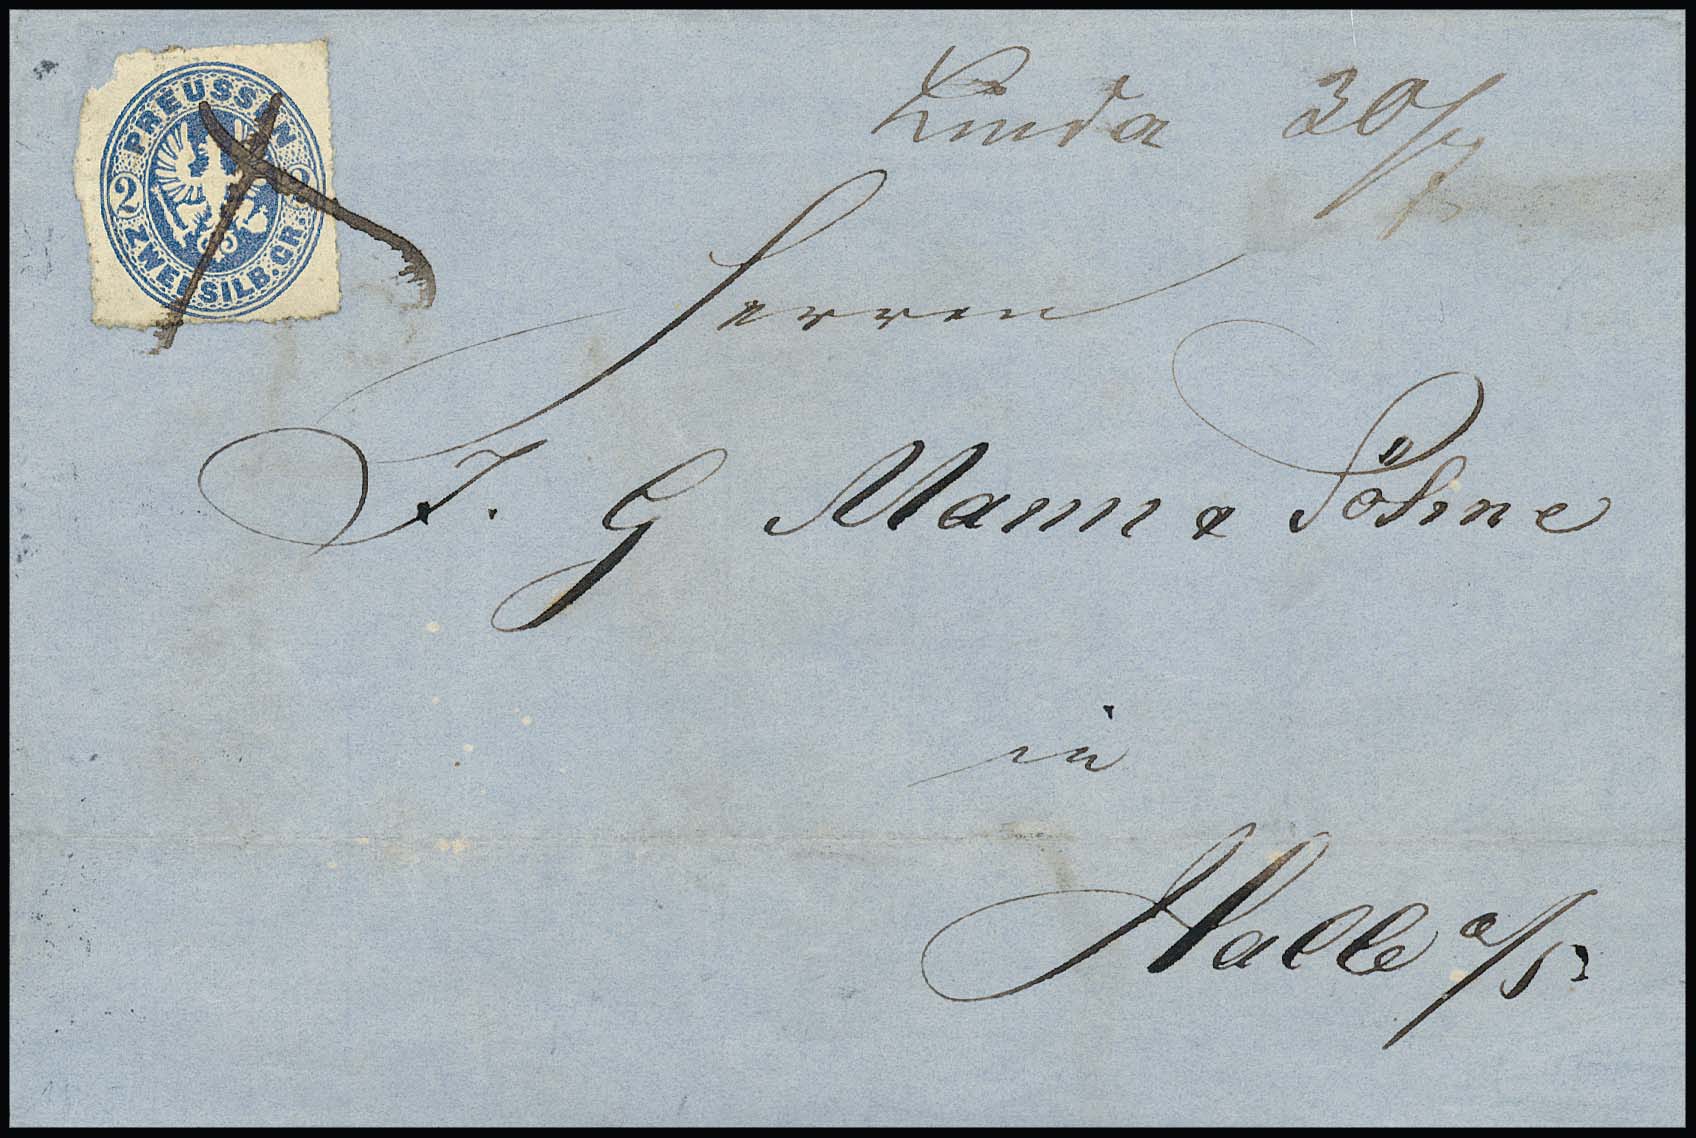 PREUSSEN
2 2
ZWEI SILB. GR.
Linda 30/7
Herren
J. G Mann & Söhne
in
Halle a/S